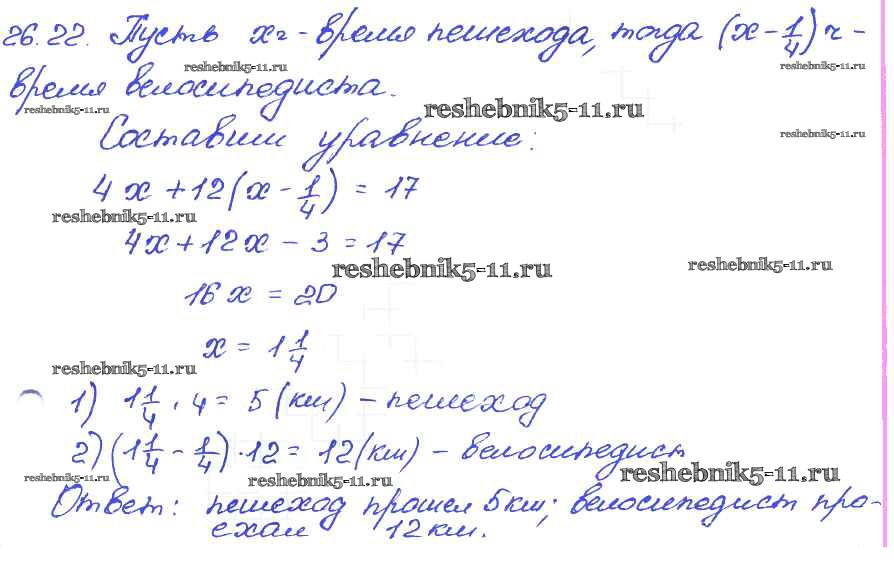 26.22. Пусть x ч - время пешехода, тогда (x - 1/4) ч -
reshebnik5-11.ru reshebnik5-11.ru
время велосипедиста.
reshebnik5-11.ru reshebnik5-11.ru
Составим уравнение:
reshebnik5-11.ru
4x + 12(x - 1/4) = 17
reshebnik5-11.ru
4x + 12x - 3 = 17
reshebnik5-11.ru reshebnik5-11.ru
16x = 20
x = 1 1/4
reshebnik5-11.ru
1) 1 1/4 · 4 = 5 (км) - пешеход
2) (1 1/4 - 1/4) · 12 = 12 (км) - велосипедист
reshebnik5-11.ru reshebnik5-11.ru reshebnik5-11.ru
Ответ: пешеход прошел 5 км; велосипедист про-
ехал 12 км.